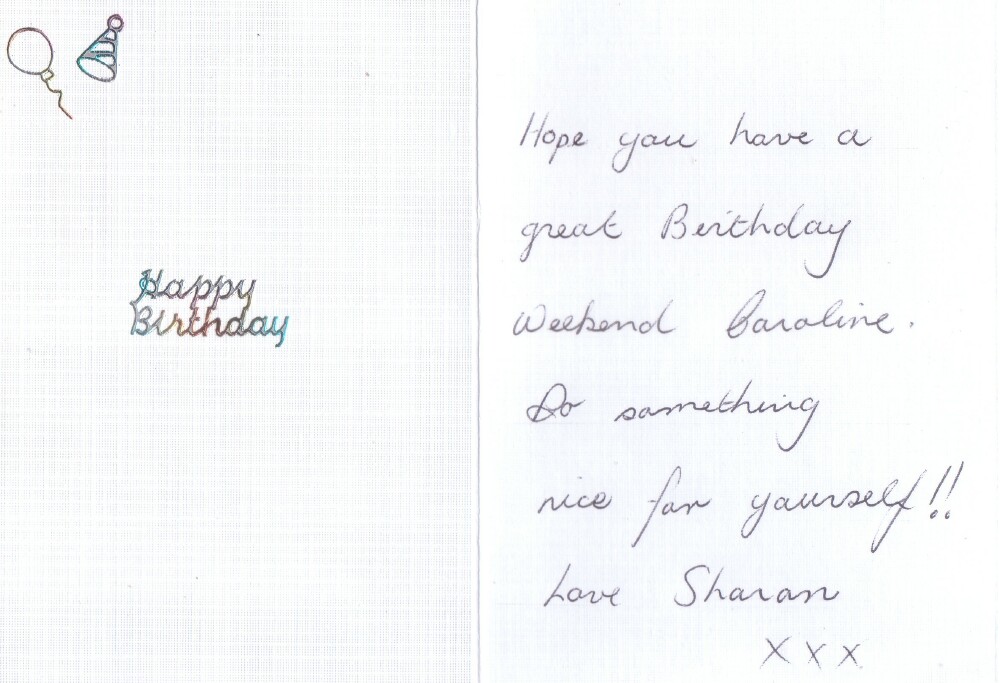 Happy
Birthday
Hope you have a
great Birthday
Weekend Caroline.
Do something
nice for yourself!!
Love Sharon
x x x